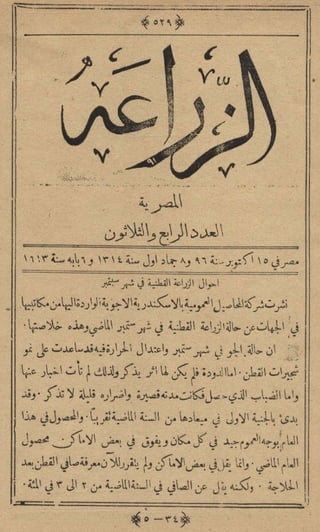 ٥٢٩
الزراعة
المصرية
العدد الرابع والثلاثون
مصر في ١٥ اكتوبر سنة ٩٦ و٨ جماد اول سنة ١٣١٤ و٦ بابه سنة ١٦١٣
احوال الزراعة القطنية في شهر سبتمبر
نشرت شركة المحاصيل العمومية بالاسكندرية الاجوبة الواردة اليها من مكاتبيها
في الجهات عن حالة الزراعة القطنية في شهر سبتمبر الماضي وهذه خلاصتها.
ان حالة الجو في شهر سبتمبر واعتدال الحرارة فيه قد ساعدت على نمو
شجيرات القطن. اما الدودة فلم يكن لها اثر يذكر ولذلك لم تأت اخبار عنها
واما الضباب الذي حصل فكانت مدته قصيرة واضراره قليلة لا تذكر. وقد
بدئ بالجنية الاولى في ميعادها من السنة الماضية تقريبًا. والمحصول في هذا
العام بوجه العموم جيد في كل مكان ويفوق في بعض الاماكن محصول
العام الماضي. وانما يقل في بعض الاماكن ولم يتقرر للآن معرفة صافي القطن بعد
الحلاجة. ولكنه يقل عن الصافي في السنة الماضية من ٢ الى ٣ في المئة.
٥ — ٣٤